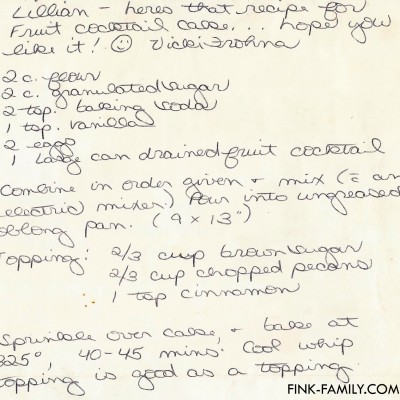 Lillian - heres that recipe for
Fruit cocktail cake... hope you
like it! ☺ Vicki Frohna
2 c. flour
2 c. granulated sugar
2 tsp. baking soda
1 tsp. vanilla
2 eggs
1 Large can drained fruit cocktail
Combine in order given & mix (c̄ an
electric mixer) Pour into ungreased
oblong pan. (9 x 13")
Topping: 2/3 cup brown sugar
2/3 cup chopped pecans
1 tsp cinnamon
Sprinkle over cake, & bake at
325°, 40-45 mins. Cool whip
topping is good as a topping.
FINK-FAMILY.COM